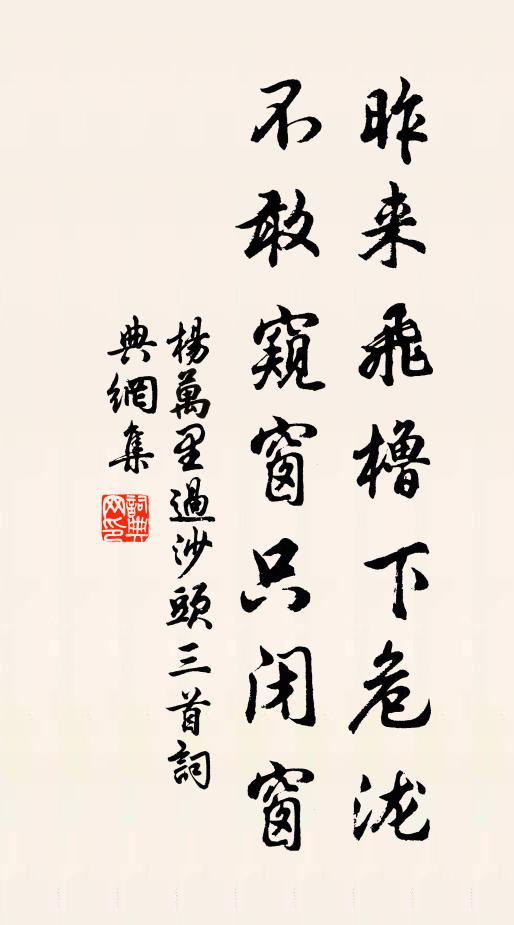 昨来飛櫓下危泷
不敢窺窗只闭窗
楊萬里過沙頭三首詞
典網集
詞典網印